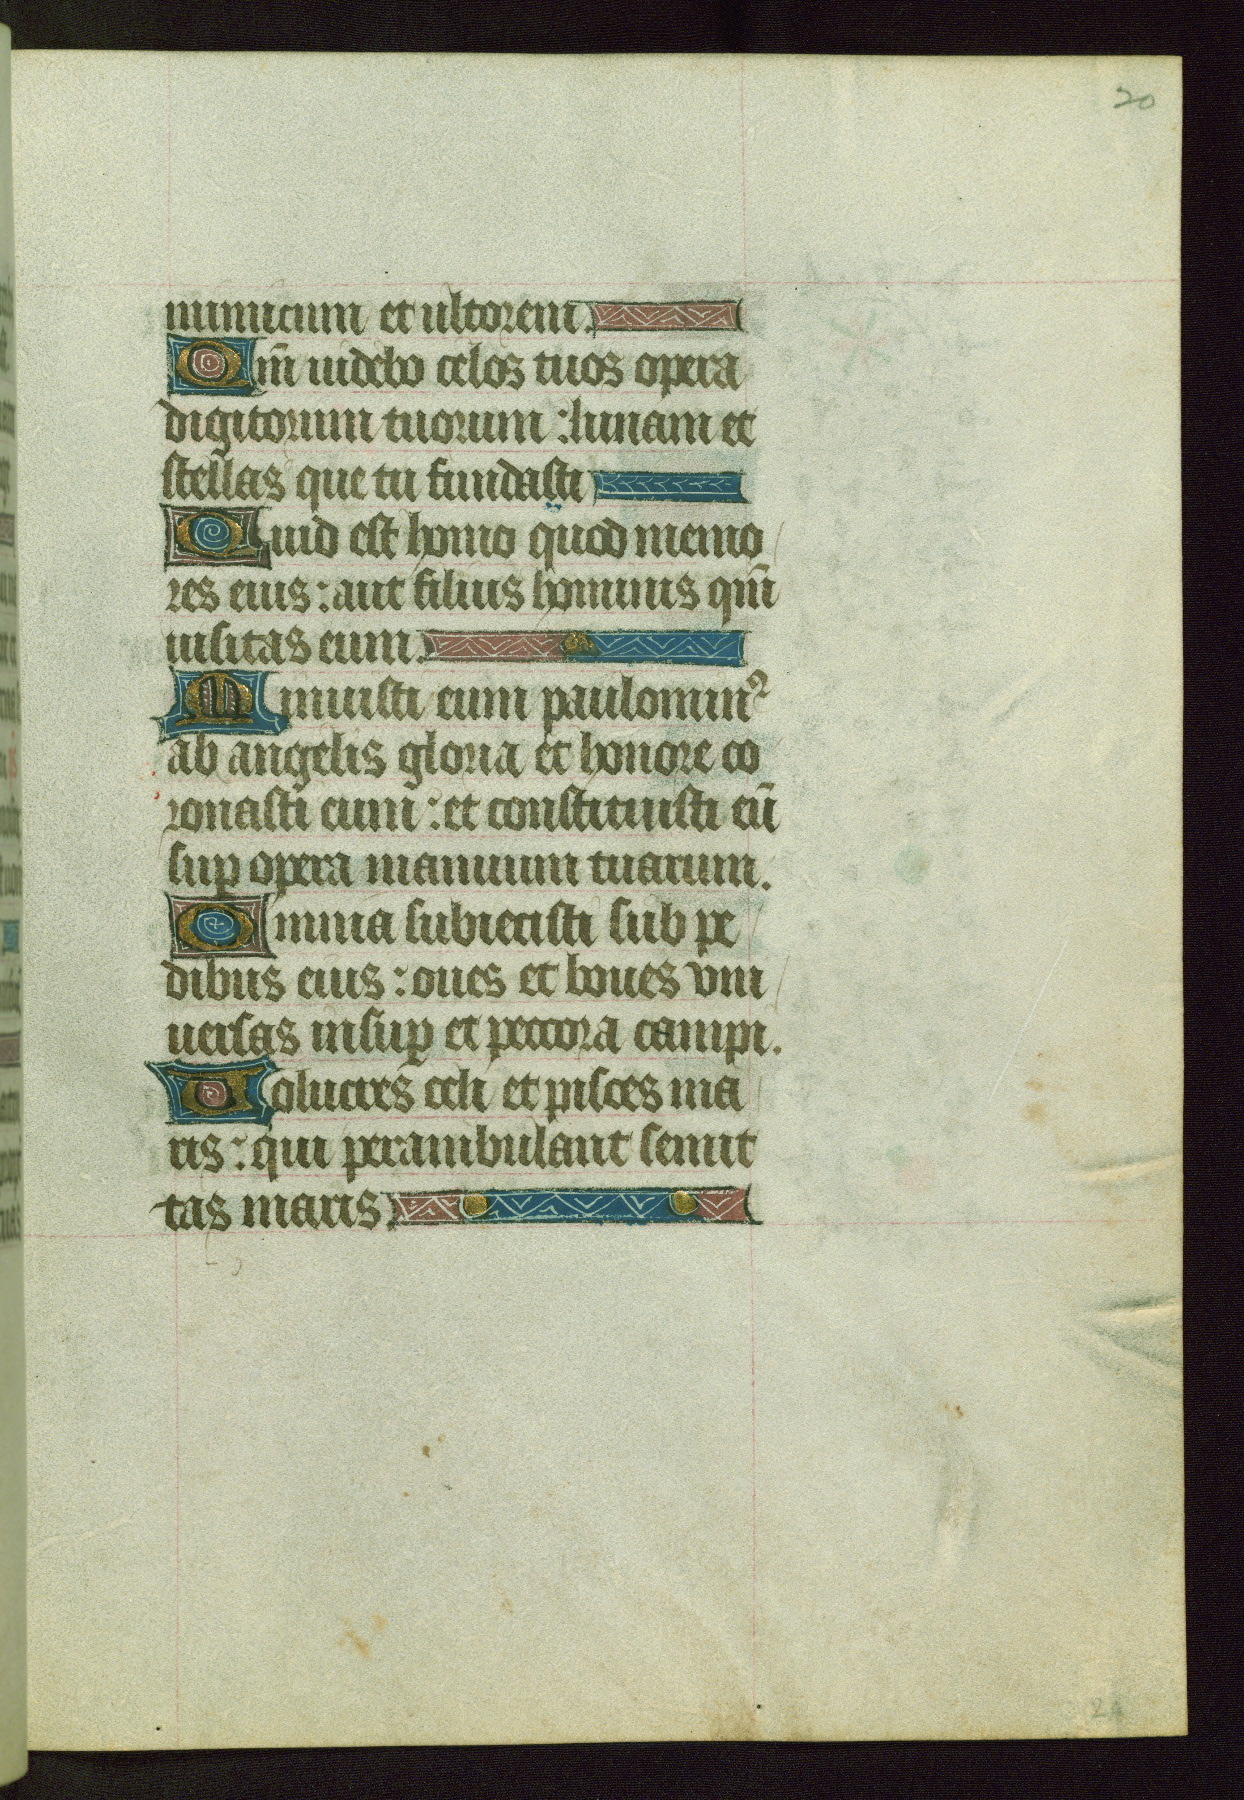 20
nimicum et ultorem.
Qm̄ uidebo celos tuos opera
digitorum tuorum : lunam et
stellas que tu fundasti
Quid est homo quod memo
res eius : aut filius hominis qm̄
uisitas eum.
Minuisti eum paulomin⁹
ab angelis gloria et honore co
ronasti eum : et constituisti eū
suꝑ opera manuum tuarum.
Omnia subiecisti sub pe
dibus eius : oues et boues vni
uersas insuꝑ et peccora campi.
Uolucres celi et pisces ma
ris : qui perambulant semit
tas maris.